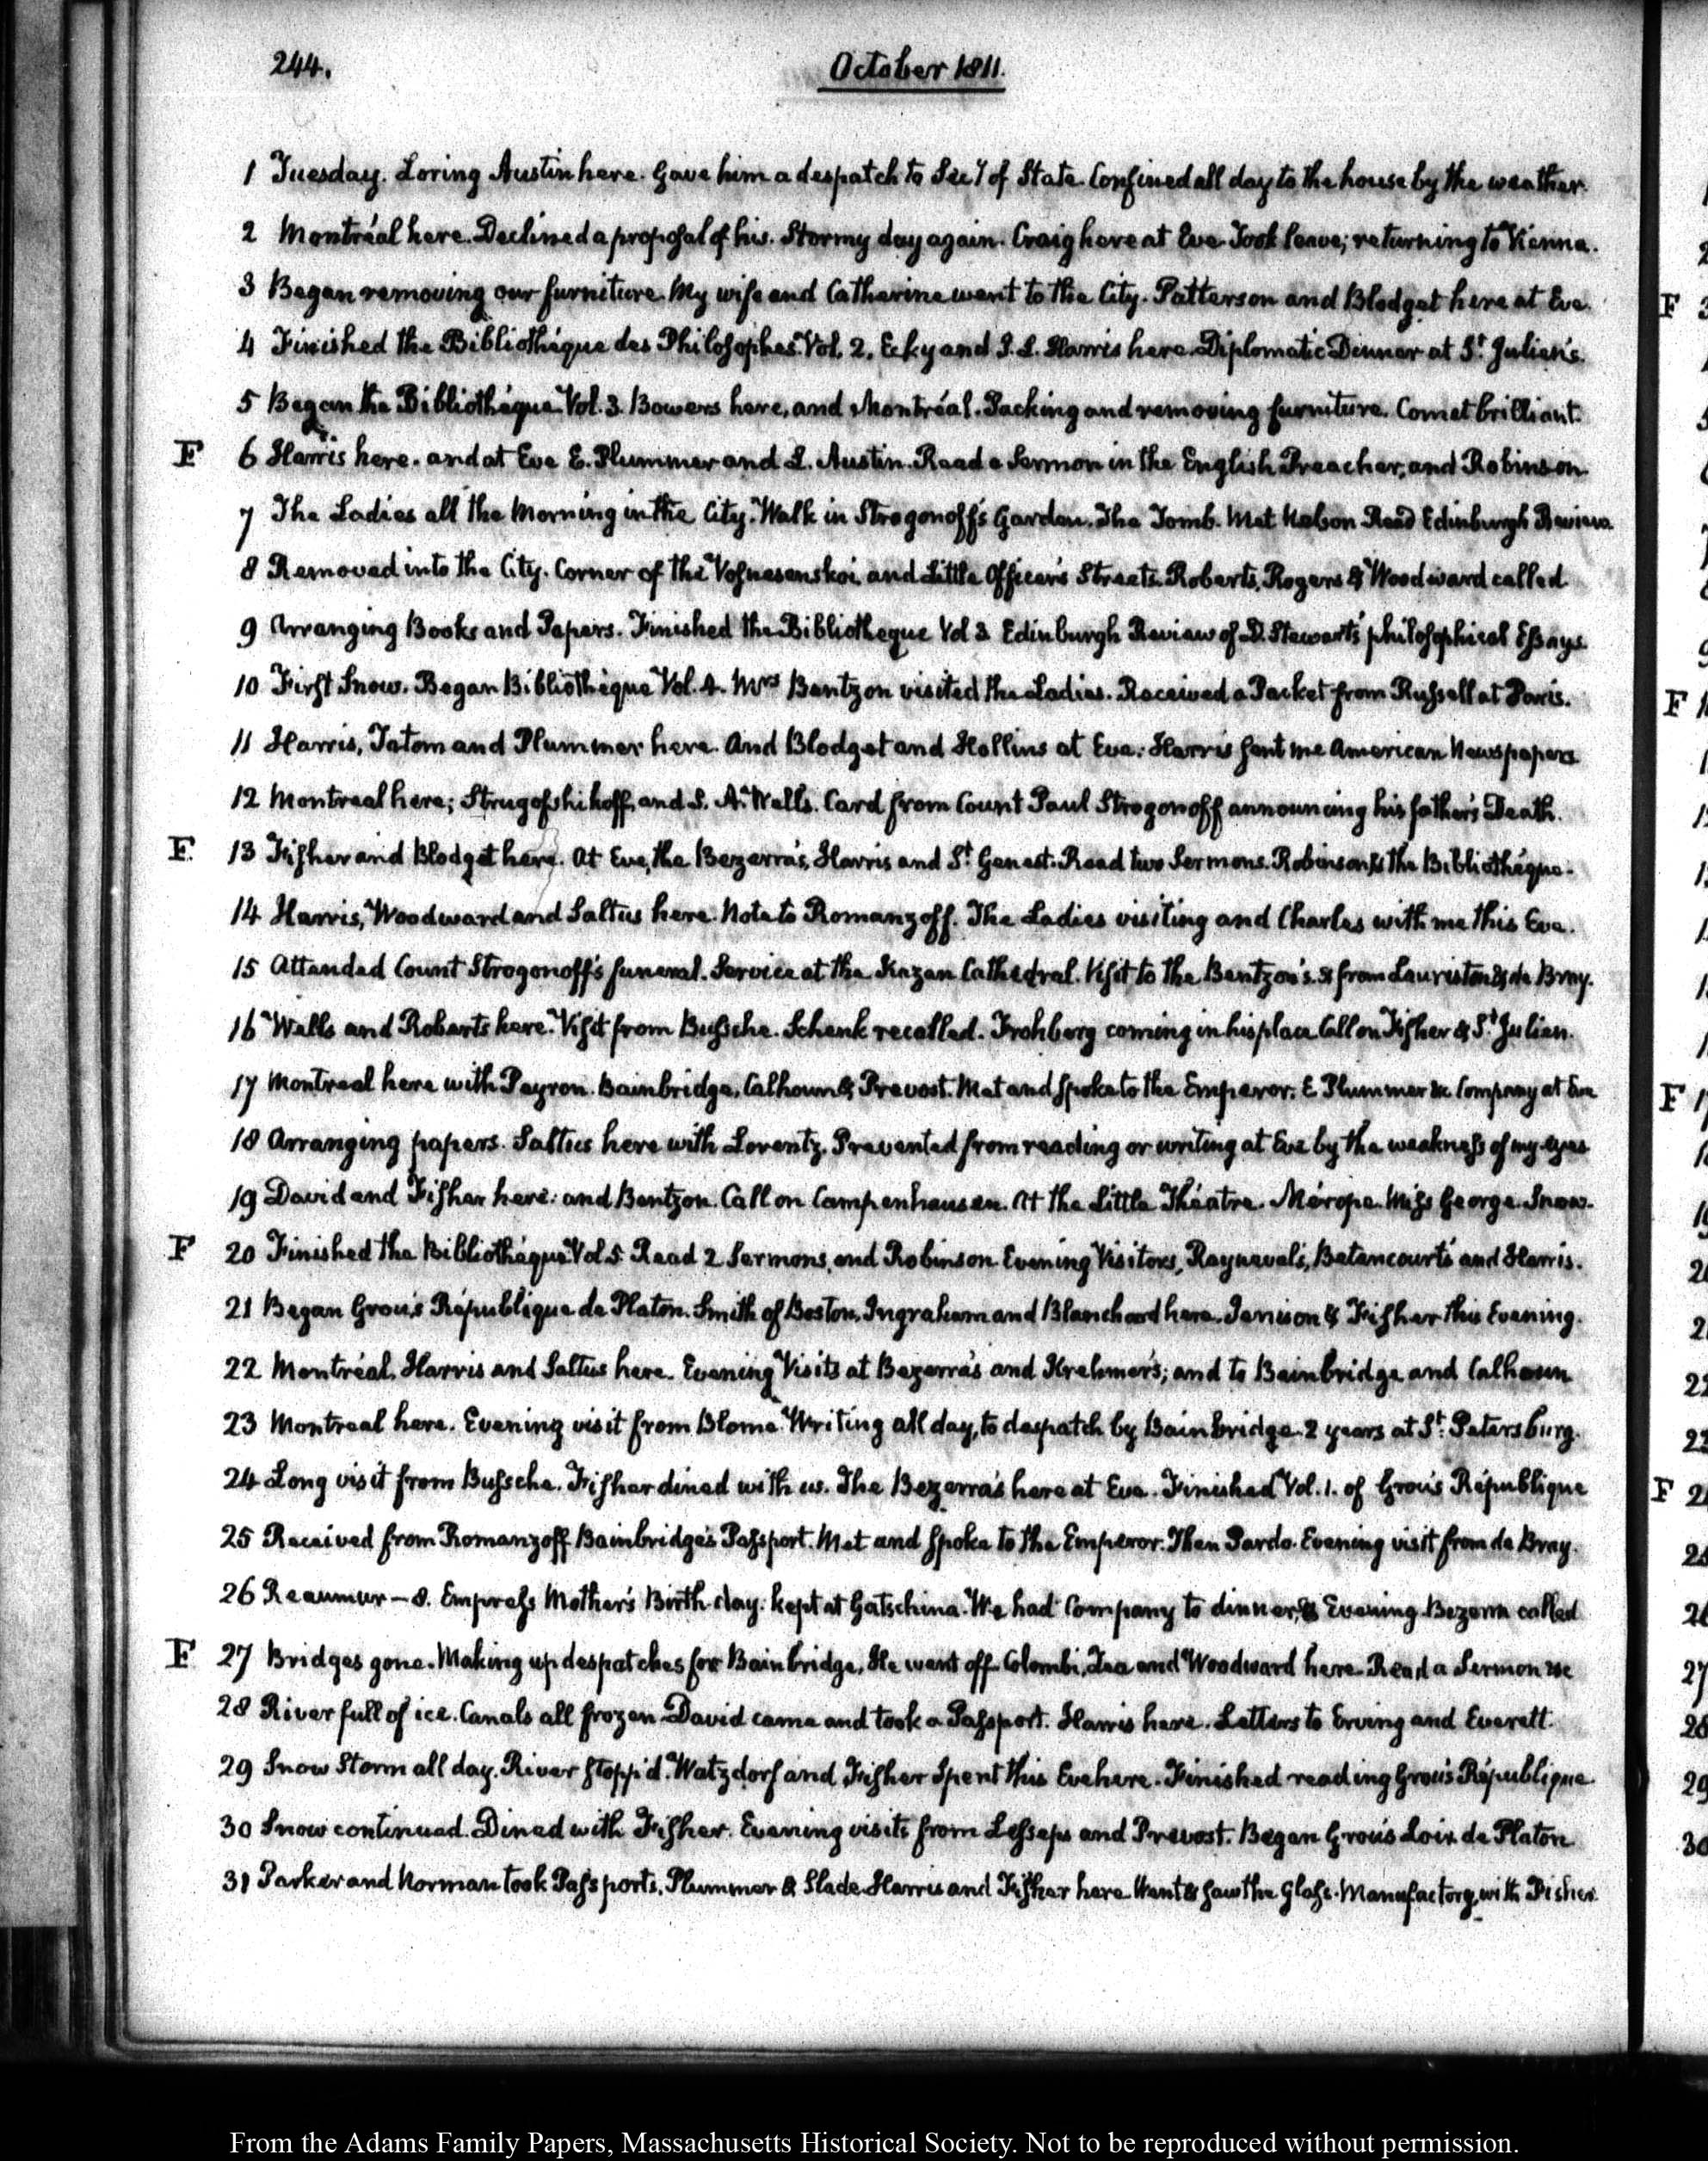 244.
October 1811.
1 Tuesday. Loring Austin here. Gave him a despatch to Secy of State. Confined all day to the house by the weather.
2 Montréal here. Declined a proposal of his. Stormy day again. Craig here at Eve. Took leave; returning to Vienna.
3 Began removing our furniture. My wife and Catherine went to the City. Patterson and Blodget here at Eve.
4 Finished the Bibliothéque des Philosophes Vol. 2. Ecky and J. L. Harris here. Diplomatic Dinner at St. Julien's.
5 Began the Bibliothéque Vol. 3. Bowers here, and Montréal. Packing and removing furniture. Comet brilliant.
F 6 Harris here. and at Eve E. Plummer and L. Austin. Read a Sermon in the English Preacher, and Robinson
7 The Ladies all the Morning in the City. Walk in Strogonoff's Garden. The Tomb. Met Nelson Read Edinburgh Review
8 Removed into the City. Corner of the Vosnesenskoi and Little Officer's Streets. Roberts, Rogers & Woodward called
9 Arranging Books and Papers. Finished the Bibliotheque Vol 3. Edinburgh Review of D. Stewart's philosophical Essays.
10 First Snow. Began Bibliothèque Vol. 4. Mrs Bentzon visited the Ladies. Received a Packet from Russell at Paris.
11 Harris, Tatom and Plummer here. And Blodget and Hollins at Eve. Harris sent me American Newspapers
12 Montreal here; Strugofshikoff, and S. A. Wells. Card from Count Paul Strogonoff announcing his father's Death.
F. 13 Fisher and Blodget here. At Eve, the Bezerra's, Harris and St Genest. Read two Sermons. Robinson & the Bibliothéque.
14 Harris, Woodward and Saltus here. Note to Romanzoff. The Ladies visiting and Charles with me this Eve.
15 Attended Count Strogonoff's funeral. Service at the Kazan Cathedral. Visit to the Bentzon's. & from Lauriston & de Bray.
16 Wells and Roberts here. Visit from Bussche. Schenk recalled. Frohberg coming in his place. Call on Fisher & St. Julien.
17 Montreal here with Peyron. Bainbridge, Calhoun & Prevost. Met and spoke to the Emperor. E. Plummer &c Company at Eve
18 Arranging papers. Saltus here with Lorentz. Prevented from reading or writing at Eve by the weakness of my eyes
19 David and Fisher here: and Bentzon. Call on Campenhausen. At the Little Théatre. Mérope. Miss George. Snow.
F 20 Finished the Bibliothéque Vol 5. Read 2 Sermons, and Robinson. Evening Visitors, Rayneval's, Betancourt's and Harris.
21 Began Grou's République de Platon. Smith of Boston, Ingraham and Blanchard here. Jenison & Fisher this Evening.
22 Montréal, Harris and Saltus here. Evening Visits at Bezerra's and Krehmer's; and to Bainbridge and Calhoun
23 Montreal here. Evening visit from Blome. Writing all day, to despatch by Bainbridge. 2 years at St. Petersburg.
24 Long visit from Bussche. Fisher dined with us. The Bezerra's here at Eve. Finished Vol. 1. of Grou's République
25 Received from Romanzoff Bainbridge's Passport. Met and spoke to the Emperor. Then Pardo. Evening visit from de Bray.
26 Reaumur – 8. Empress Mother's Birth-day. kept at Gatschina. We had Company to dinner, & Evening. Bezerra called
F 27 Bridges gone. Making up despatches for Bainbridge. He went off. Colombi, Zea and Woodward here. Read a Sermon &c
28 River full of ice. Canals all frozen. David came and took a Passport. Harris here. Letters to Erving and Everett.
29 Snow Storm all day. River stopp'd. Watzdorf and Fisher spent this Eve here. Finished reading Grou's République.
30 Snow continued. Dined with Fisher. Evening visits from Lesseps and Prevost. Began Grou's Loix de Platon
31 Parker and Norman took Passports. Plummer & Slade. Harris and Fisher here. Went & saw the Glass-Manufactory, with Fisher.
From the Adams Family Papers, Massachusetts Historical Society. Not to be reproduced without permission.